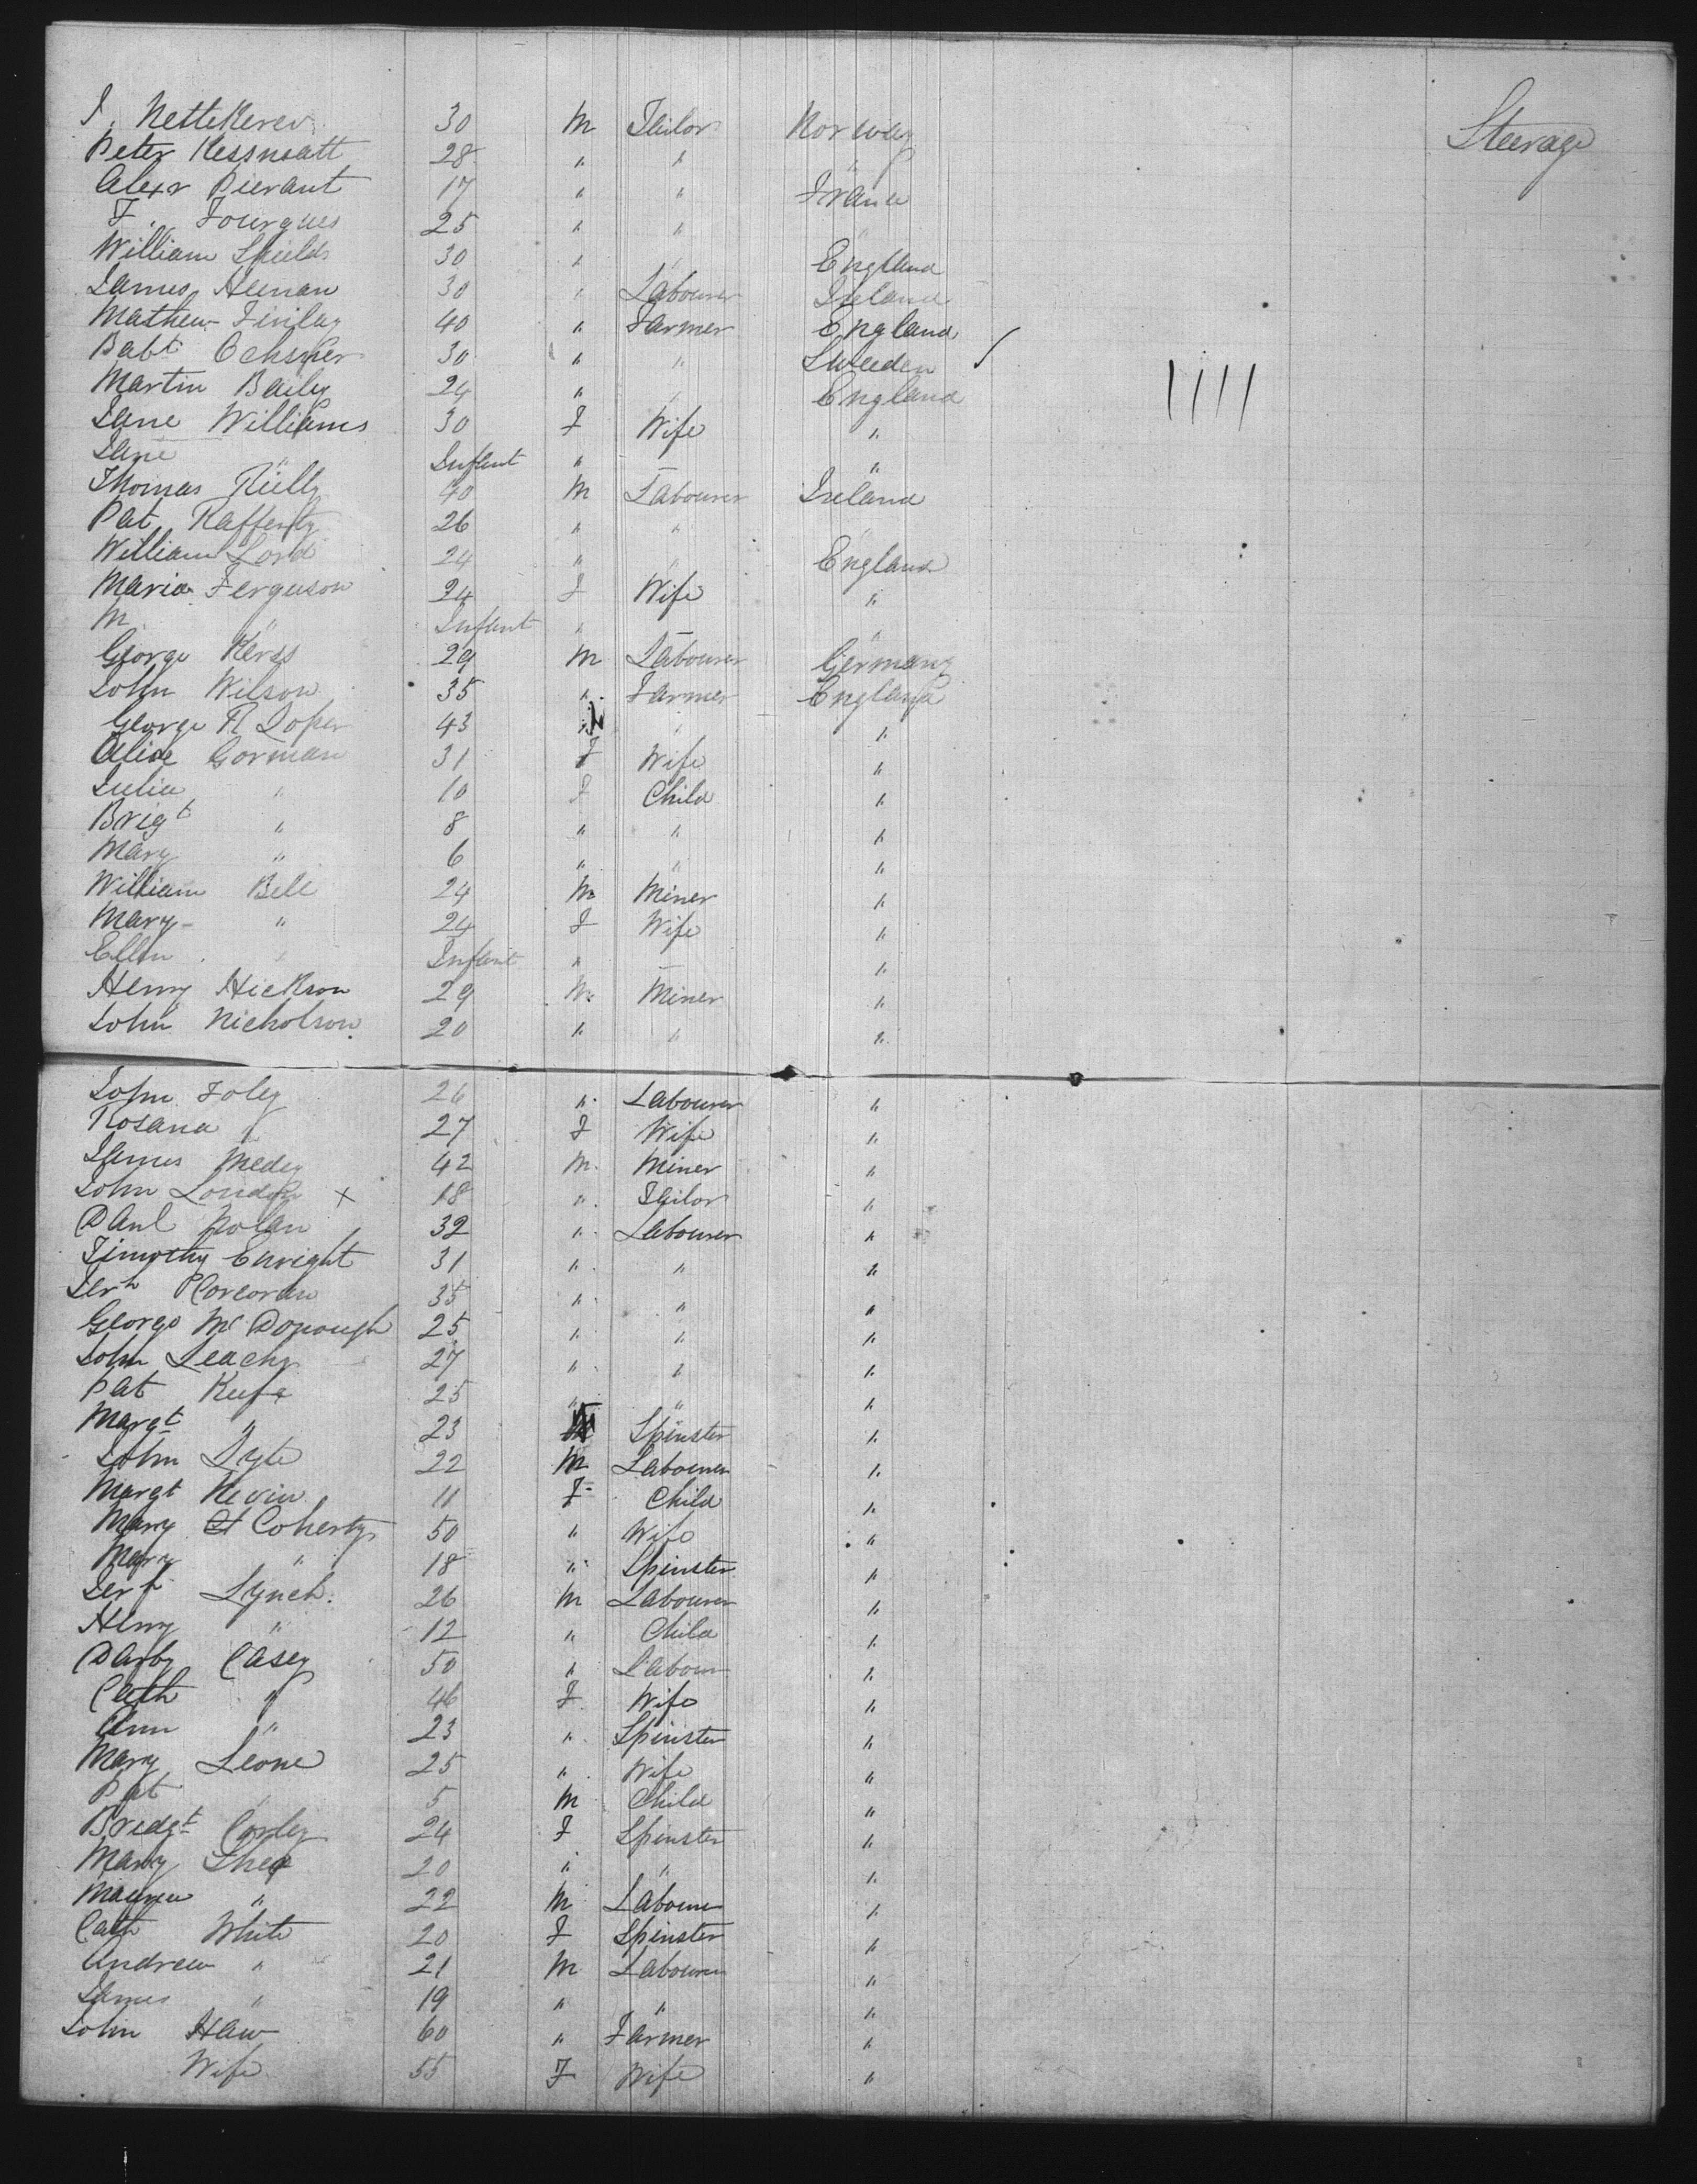 Steerage
J. Nettekerev 30 M Tailor Norway
Peter Kessneatt 28 " " "
Alexr Pierant 17 " " France
F. Fourgues 25 " " "
William Shields 30 " " England
James Heenan 30 " Labourer Ireland
Mathew Finlay 40 " Farmer England
Babt Ochsner 30 " " Sweeden /
Martin Baily 24 " " England
Jane Williams 30 F Wife "
Jane " Infant " – "
Thomas Rielly 40 M Labourer Ireland
Pat Rafferty 26 " " "
William Lord 24 " " England
Maria Ferguson 24 F Wife "
M. " Infant " – "
George Kerss 29 M Labourer Germany
John Wilson 35 " Farmer England
George R Loper 43 " " "
Alice Gorman 31 F Wife "
Julia " 10 F Child "
Brigt " 8 " " "
Mary " 6 " " "
William Bell 24 M Miner "
Mary " 24 F Wife "
Ellen " Infant " – "
Henry Hickson 29 M Miner "
John Nicholson 20 " " "
John Foley 26 " Labourer "
Rosana " 27 F Wife "
James Medey 42 M Miner "
John London x 18 " Tailor "
Danl Nolan 32 " Labourer "
Timothy Enright 31 " " "
Jerh Corcoran 35 " " "
George McDonough 25 " " "
John Leachy 27 " " "
Pat Keefe 25 " " "
Margt " 23 Spinster "
John Lyle 22 M Labourer "
Margt Kevin 11 F Child "
Mary Coherty 50 " Wife "
Mary " 18 " Spinster "
Jerh Lynch 26 M Labourer "
Henry " 12 " Child "
Darby Casey 50 " Labour "
Cath " 46 F Wife "
Ann " 23 " Spinster "
Mary Leone 25 " Wife "
Pat " 5 M Child "
Bridgt Corley 24 F Spinster "
Mary Shea 20 " " "
" 22 M Labourer "
Cath White 20 F Spinster "
Andrew " 21 M Labourer "
James " 19 " " "
John Haw 60 " Farmer "
Wife 55 F Wife "